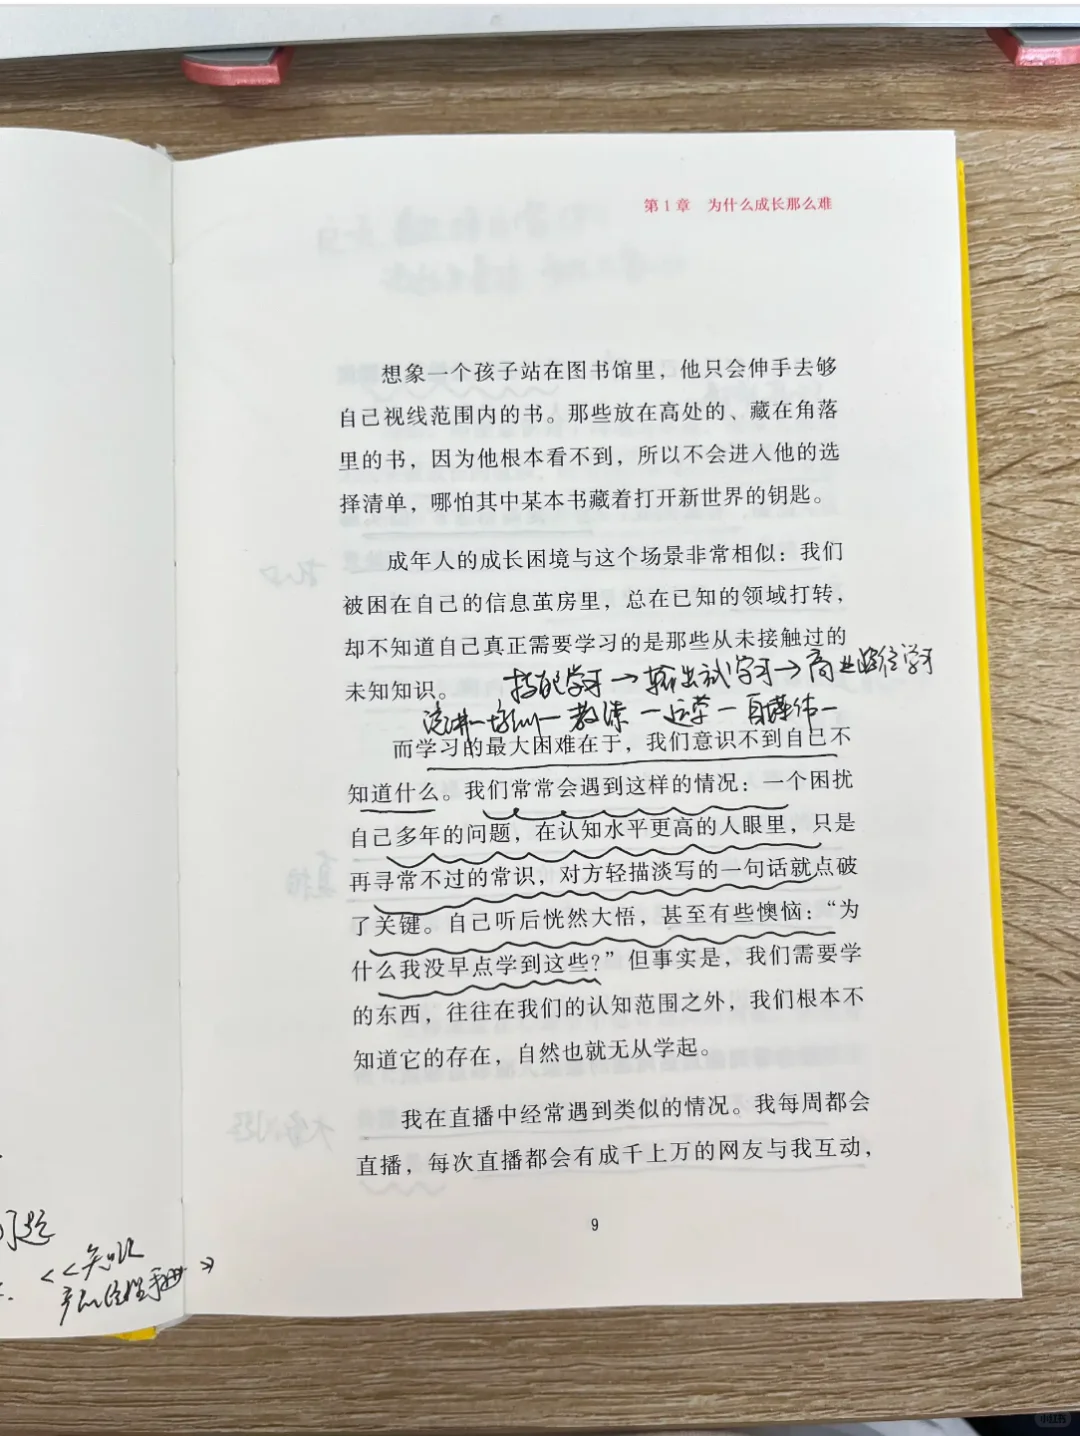 第1章 为什么成长那么难
想象一个孩子站在图书馆里，他只会伸手去够
自己视线范围内的书。那些放在高处的、藏在角落
里的书，因为他根本看不到，所以不会进入他的选
择清单，哪怕其中某本书藏着打开新世界的钥匙。
成年人的成长困境与这个场景非常相似：我们
被困在自己的信息茧房里，总在已知的领域打转，
却不知道自己真正需要学习的是那些从未接触过的
未知知识。
技能学习→输出式学习→商业路径学习
演讲—培训—教练—运营—自媒体—
而学习的最大困难在于，我们意识不到自己不
知道什么。我们常常会遇到这样的情况：一个困扰
自己多年的问题，在认知水平更高的人眼里，只是
再寻常不过的常识，对方轻描淡写的一句话就点破
了关键。自己听后恍然大悟，甚至有些懊恼：“为
什么我没早点学到这些？”但事实是，我们需要学
的东西，往往在我们的认知范围之外，我们根本不
知道它的存在，自然也就无从学起。
我在直播中经常遇到类似的情况。我每周都会
直播，每次直播都会有成千上万的网友与我互动，
9
问题
<<知识
产品经理手册>>